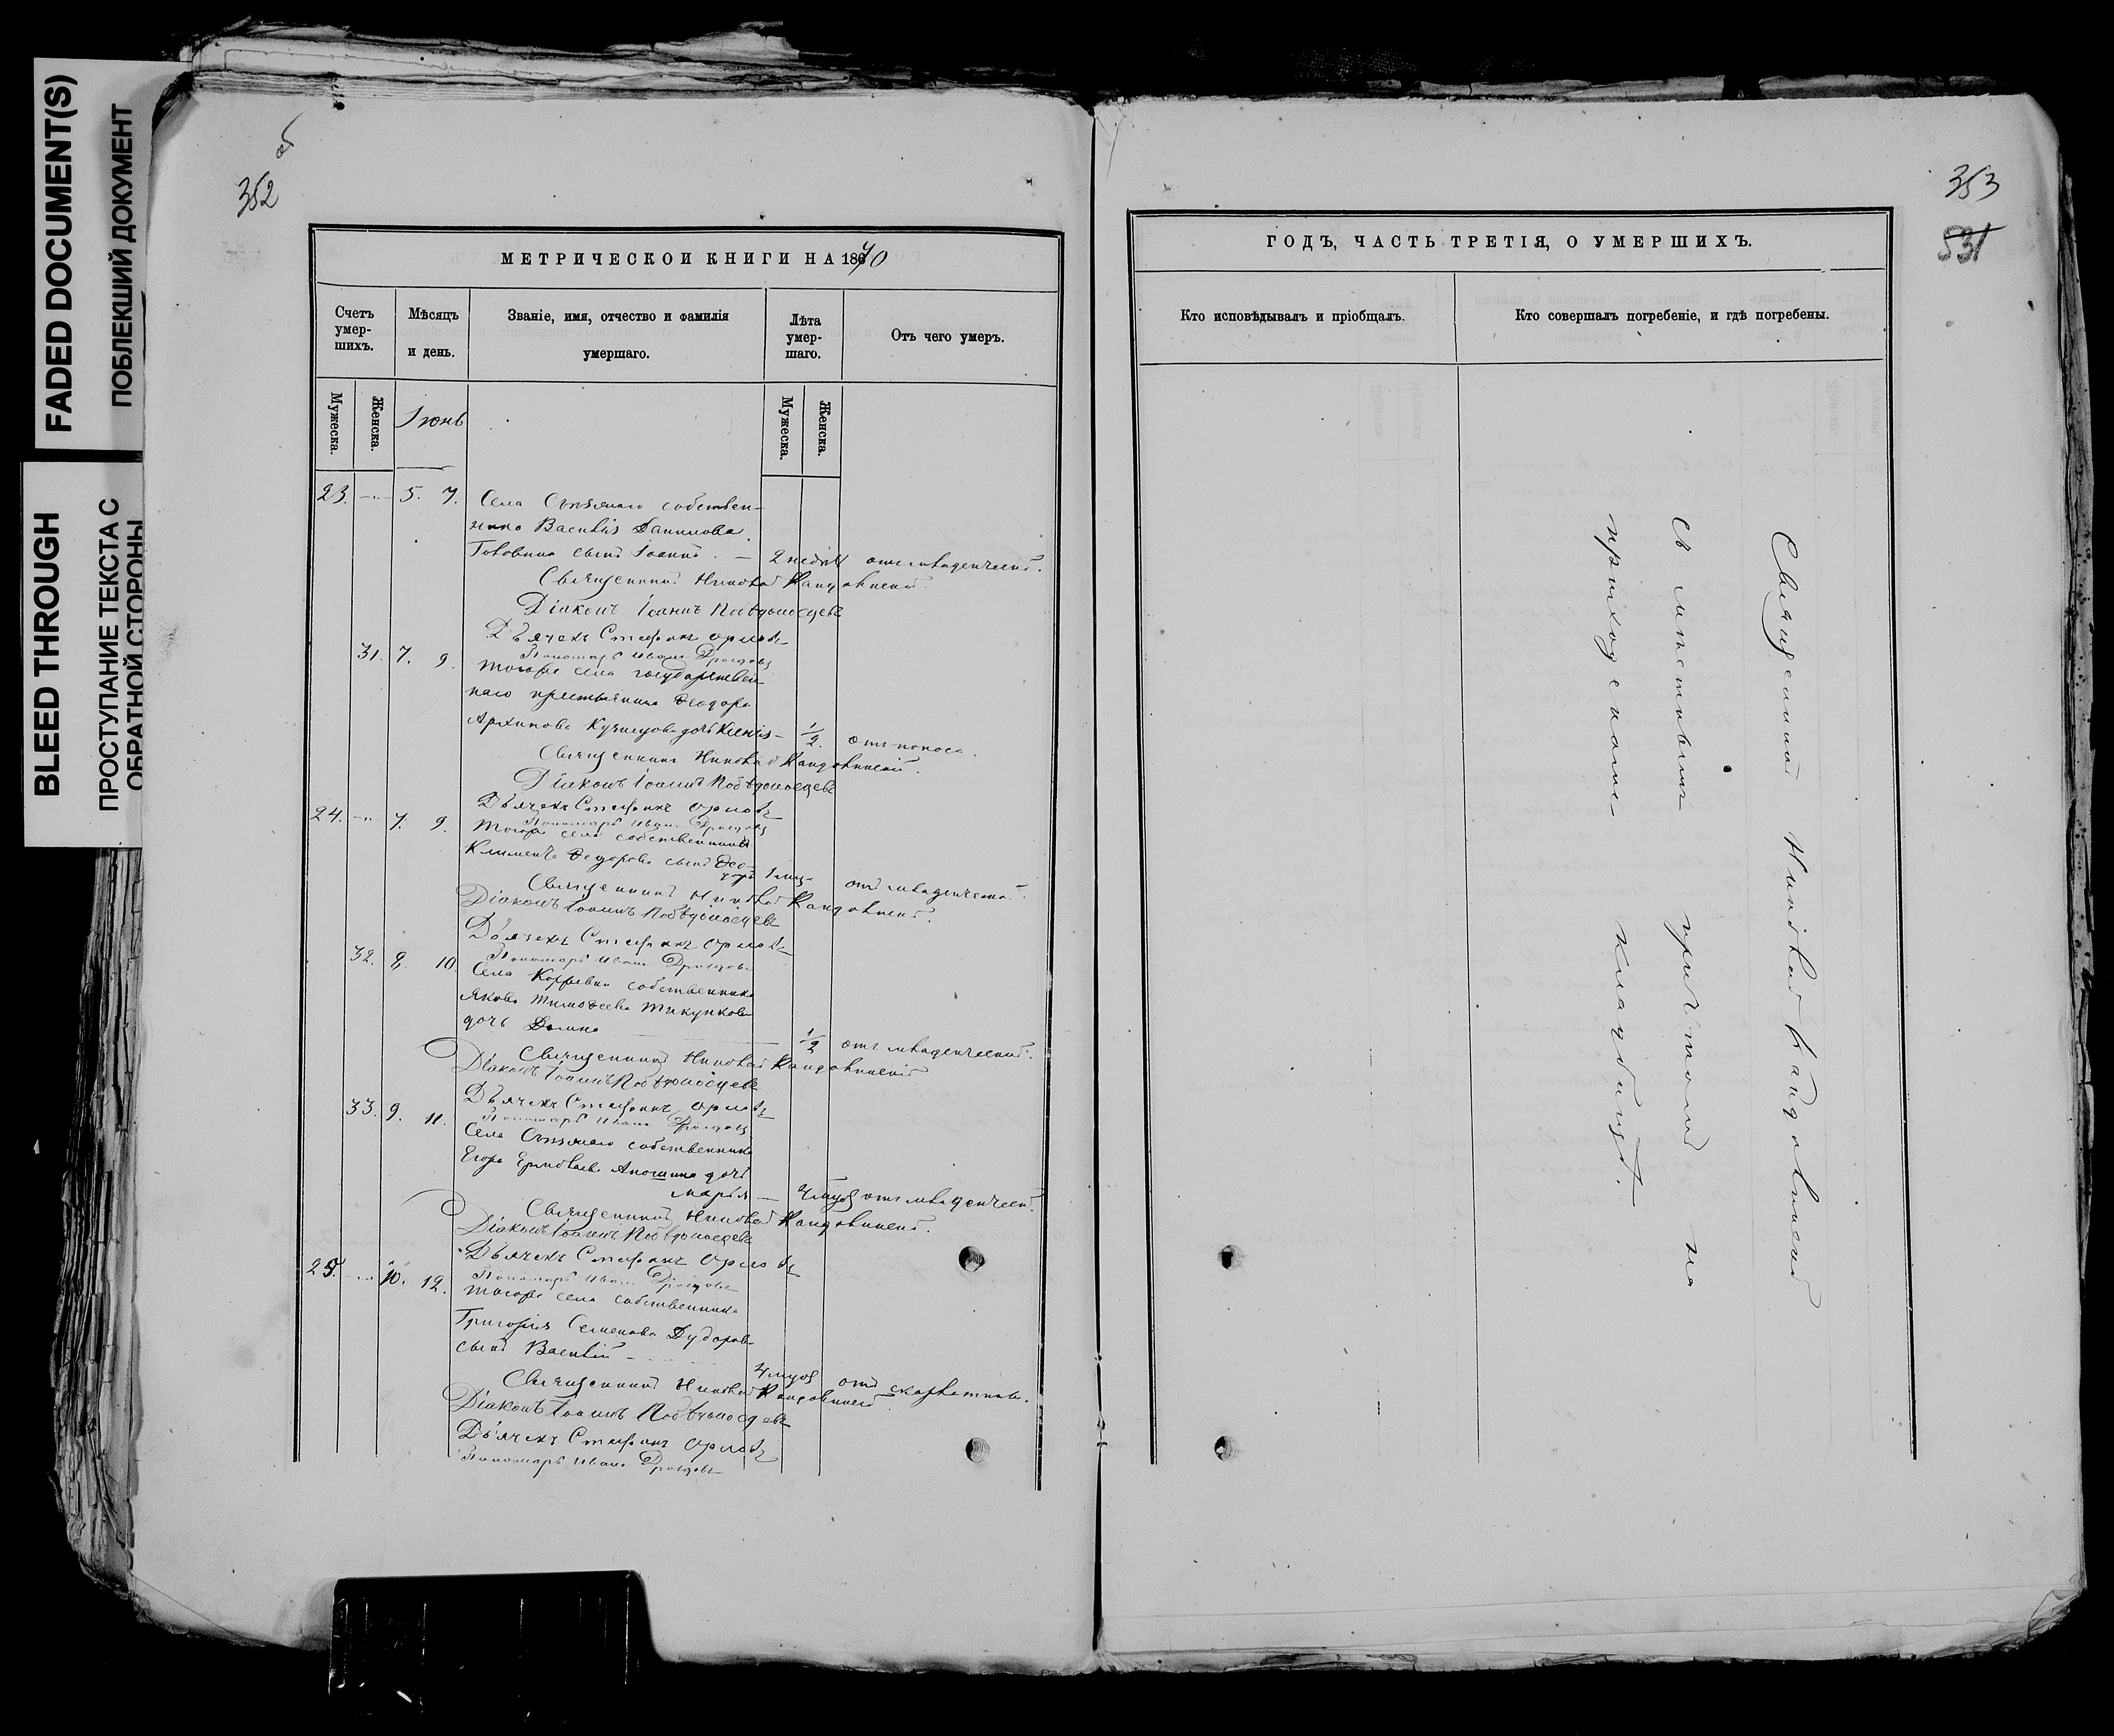 FADED DOCUMENT(S)
ПОБЛЕКШИЙ ДОКУМЕНТ
BLEED THROUGH
ПРОСТУПАНИЕ ТЕКСТА С
ОБРАТНОЙ СТОРОНЫ
об
352
МЕТРИЧЕСКОЙ КНИГИ НА 1870
Счетъ умер-шихъ.
Мѣсяцъ и день.
Званіе, имя, отчество и фамилія умершаго.
Лѣта умер-шаго.
Отъ чего умеръ.
Мужеска.
Женска.
Іюнь
Мужеска.
Женска.
23. 5. 7. Села собствен-
ника Василія Данилова
Головина сынъ Іоаннъ. 2 недѣли отъ младенческой.
Священникъ Николай
Діаконъ Іоаннъ Побѣдоносцевъ
Дьячекъ Стефанъ Орловъ
Пономарь Иванъ Дроздовъ
31. 7. 9. тогоже села государствен-
наго крестьянина Ѳеодора
Архипова Кузнецова дочь Ксенія 1/2. отъ поноса.
Священникъ Николай
Діаконъ Іоаннъ Побѣдоносцевъ
Дьячекъ Стефанъ Орловъ
Пономарь Иванъ Дроздовъ
24. 7. 9. тогоже села собственника
Климента Ѳедорова сынъ Ѳео-
доръ 1 мѣс. отъ младенческой.
Священникъ Николай
Діаконъ Іоаннъ Побѣдоносцевъ
Дьячекъ Стефанъ Орловъ
Пономарь Иванъ Дроздовъ
32. 8. 10. Села собственника
Якова Тимоѳеева Тикункова
дочь 1/2 отъ младенческой.
Священникъ Николай
Діаконъ Іоаннъ Побѣдоносцевъ
Дьячекъ Стефанъ Орловъ
Пономарь Иванъ Дроздовъ
33. 9. 11. Села собственника
Егора Ермолаева Аношина дочь
Марья отъ младенческой.
Священникъ Николай
Діаконъ Іоаннъ Побѣдоносцевъ
Дьячекъ Стефанъ Орловъ
Пономарь Иванъ Дроздовъ
25. 10. 12. тогоже села собственника
Григорія Семенова Дударова
сынъ Василій отъ скарлатины.
Священникъ Николай
Діаконъ Іоаннъ Побѣдоносцевъ
Дьячекъ Стефанъ Орловъ
Пономарь Иванъ Дроздовъ
353
531
ГОДЪ, ЧАСТЬ ТРЕТІЯ, О УМЕРШИХЪ.
Кто исповѣдывалъ и пріобщалъ.
Кто совершалъ погребеніе, и гдѣ погребены.
Священникъ Николай
съ мѣстнымъ причтомъ на
приходскомъ кладбищѣ.